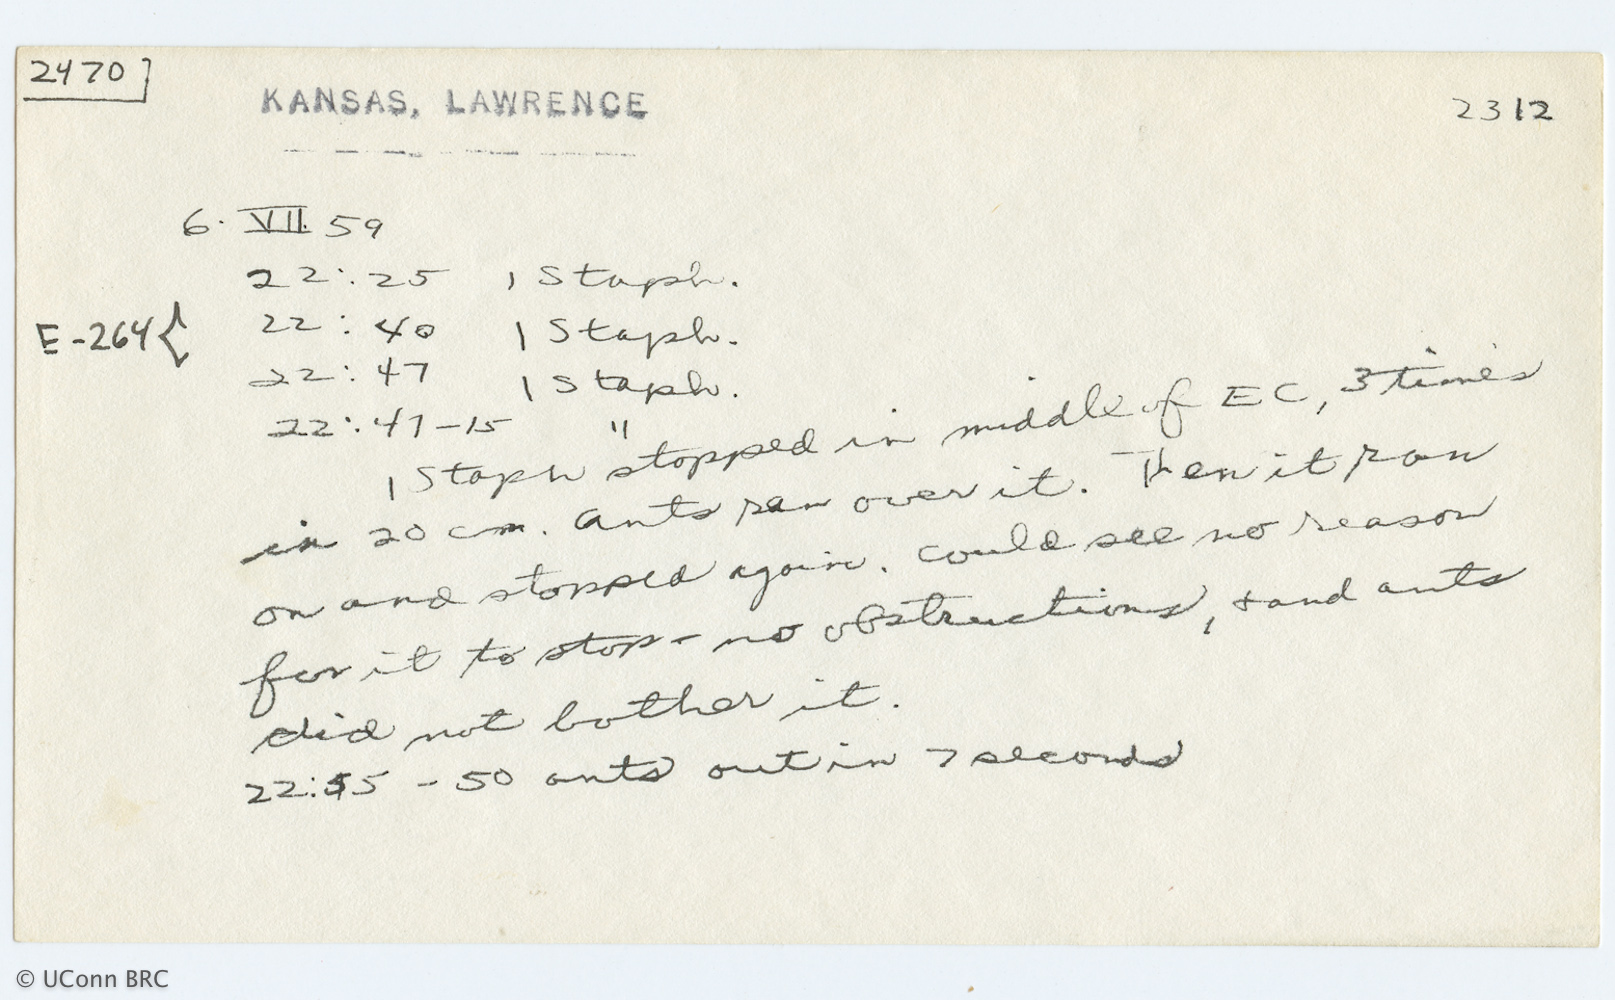 2470
KANSAS, LAWRENCE
2312
6. VII. 59
22:25 1 Staph.
E-264 { 22:40 1 Staph.
22:47 1 Staph.
22:47-15 "
1 Staph stopped in middle of EC, 3 times
in 20 cm. Ants ran over it. Then it ran
on and stopped again. Could see no reason
for it to stop - no obstructions, + and ants
did not bother it.
22:55 - 50 ants out in 7 seconds
© UConn BRC